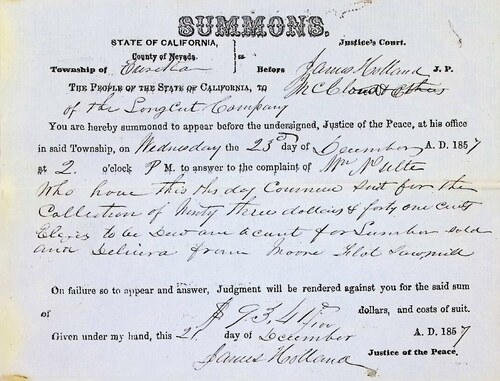 SUMMONS.
STATE OF CALIFORNIA,
County of Nevada.
Justice's Court.
Township of Eureka Before James Holland J. P.
THE PEOPLE OF THE STATE OF CALIFORNIA, TO McCloud & others
of the Long Cut Company
You are hereby summoned to appear before the undersigned, Justice of the Peace, at his office
in said Township, on Wednesday the 23d day of December A. D. 1857
at 2. o'clock P M. to answer to the complaint of Wm
Who have this day Commence Suit for the
Collection of Ninty three dollars & forty one cents
to be Due on acount for Lumber sold
and Delivered from Moore Flat Sawmill
On failure so to appear and answer, Judgment will be rendered against you for the said sum
of $ 93.41/100 dollars, and costs of suit.
Given under my hand, this 21 day of December A. D. 1857
James Holland Justice of the Peace.